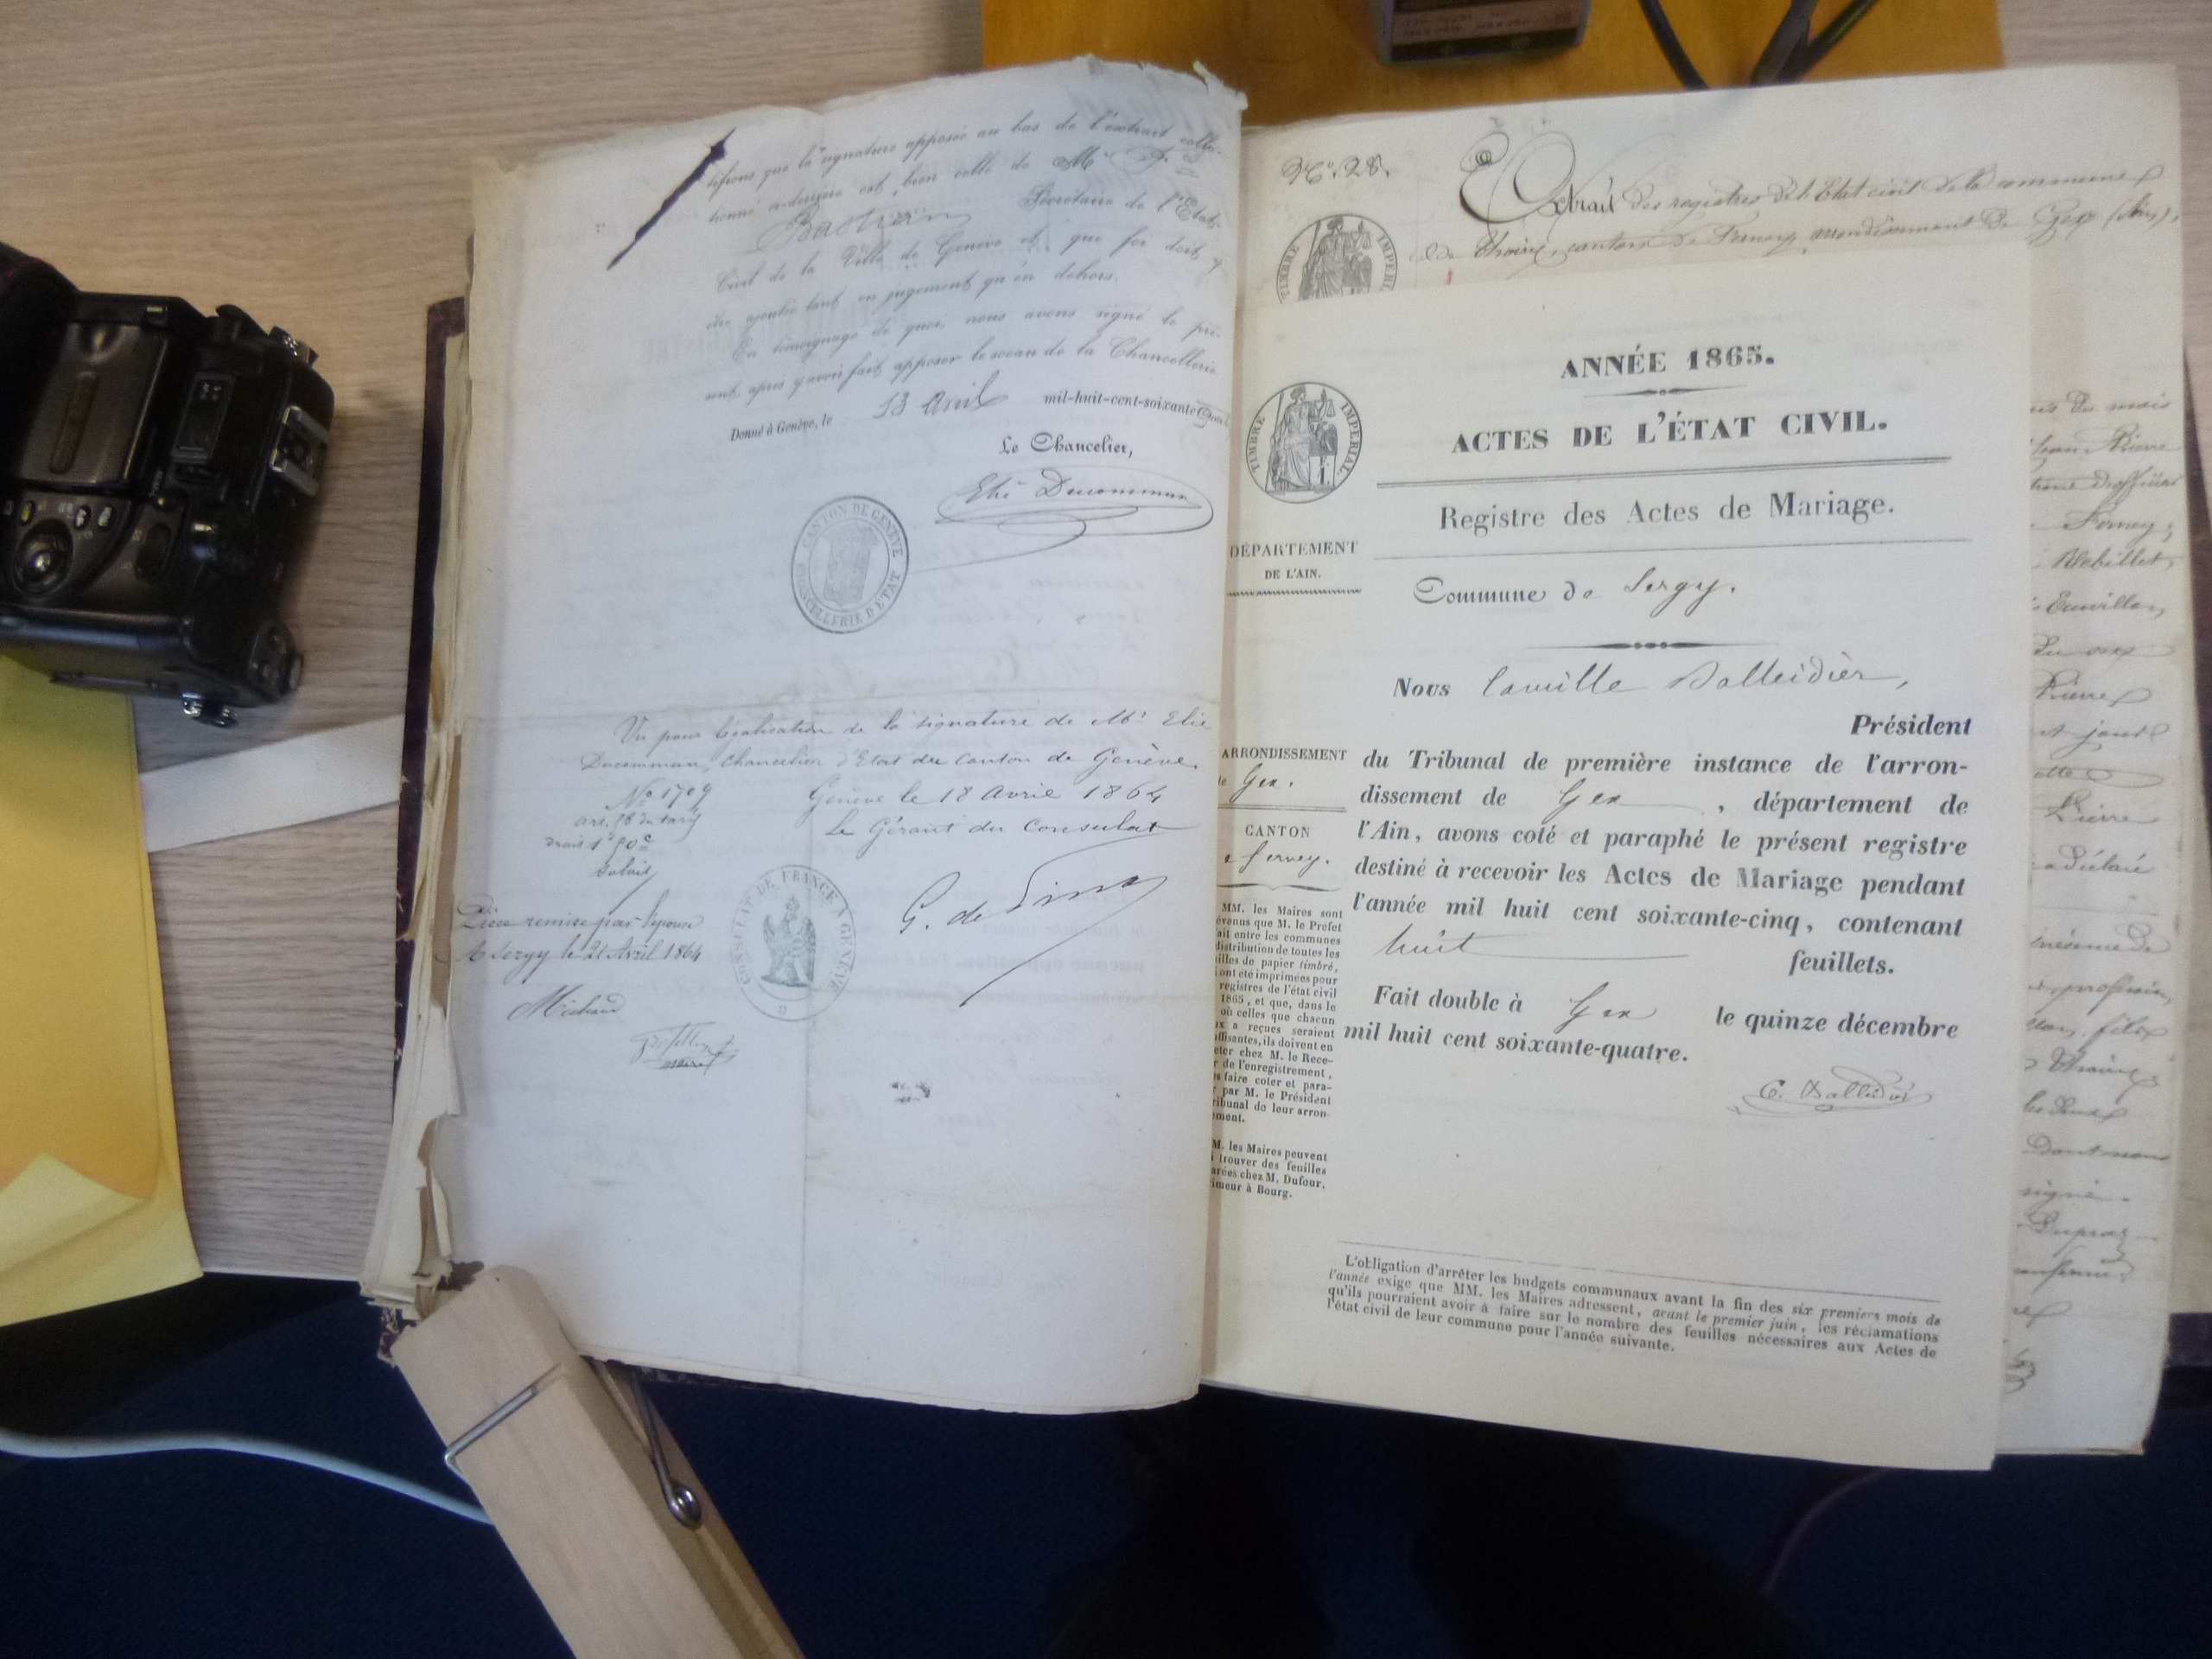 tifions que la signature apposée au bas de l'extrait
tionné ci-derrière est bien celle de Mr
Secrétaire de l'État-
Civil de la Ville de Genève et que foi doit y
être ajoutée tant en jugement qu'en dehors.
En témoignage de quoi, nous avons signé le pré-
sent, après y avoir fait apposer le sceau de la Chancellerie
Donné à Genève, le 13 Avril mil-huit-cent-soixante
Le Chancelier,
Elie Ducommun
CANTON DE GENÈVE
CHANCELLERIE D'ÉTAT
Vu pour légalisation de la signature de Mr Elie
Ducommun, Chancelier d'Etat du Canton de Genève.
No 1709
Genève le 18 Avril 1864
art. du tarif
Le Gérant du Consulat
G. de
CONSULAT DE FRANCE A GENÈVE
Pièce remise par l'épouse
A Sergy le 21 Avril 1864
Michaud
maire
No. 28.
Extrait des registres de l'Etat civil de la commune
de Thoiry, canton de Ferney, arrondissement de Gex (Ain),
TIMBRE IMPERI
ANNÉE 1865.
ACTES DE L'ÉTAT CIVIL.
TIMBRE IMPERIAL
Registre des Actes de Mariage.
DÉPARTEMENT
DE L'AIN.
Commune de Sergy.
Nous Camille Balleidier,
Président
ARRONDISSEMENT
de Gex.
CANTON
e Ferney.
du Tribunal de première instance de l'arron-
dissement de Gex , département de
l'Ain, avons coté et paraphé le présent registre
destiné à recevoir les Actes de Mariage pendant
l'année mil huit cent soixante-cinq, contenant
huit feuillets.
Fait double à Gex le quinze décembre
mil huit cent soixante-quatre.
C. Balleidier
MM. les Maires sont
évenus que M. le Préfet
ait entre les communes
distribution de toutes les
illes de papier timbré,
i ont été imprimées pour
registres de l'état civil
1865, et que, dans le
où celles que chacun
ux a reçues seraient
uffisantes, ils doivent en
eter chez M. le Rece-
r de l'enregistrement,
s faire coter et para-
r par M. le Président
ribunal de leur arron-
ement.
M. les Maires peuvent
i trouver des feuilles
arées chez M. Dufour,
imeur à Bourg.
L'obligation d'arrêter les budgets communaux avant la fin des six premiers mois de
l'année exige que MM. les Maires adressent, avant le premier juin, les réclamations
qu'ils pourraient avoir à faire sur le nombre des feuilles nécessaires aux Actes de
l'état civil de leur commune pour l'année suivante.
du mois
Jean Pierre
Ferney,
Pierre
Pierre
a déclaré
profession,
fils
Thoiry
Dont nous
signé